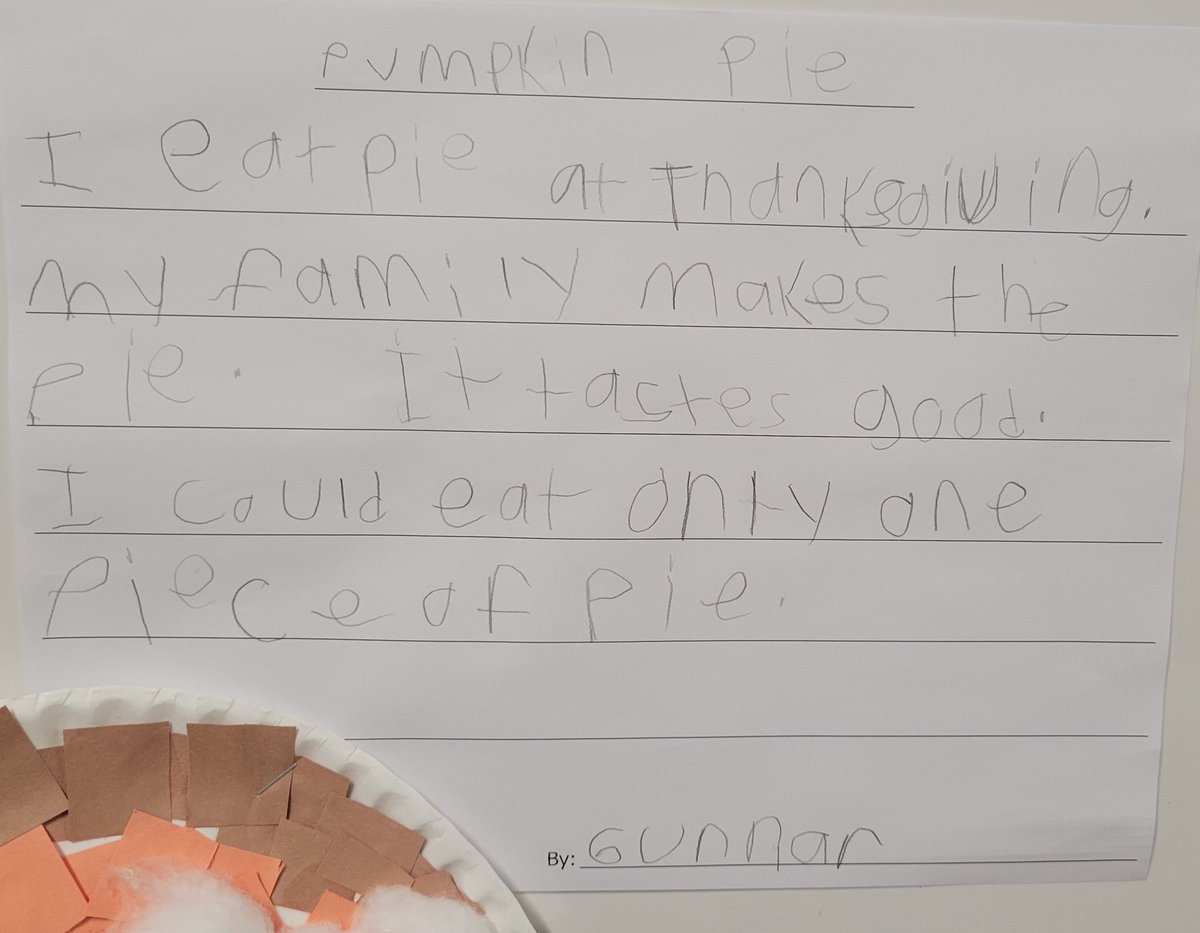 Pumpkin Pie
I eat pie at Thanksgiving.
my family makes the
pie. It tastes good.
I could eat only one
piece of pie.
By: Gunnar